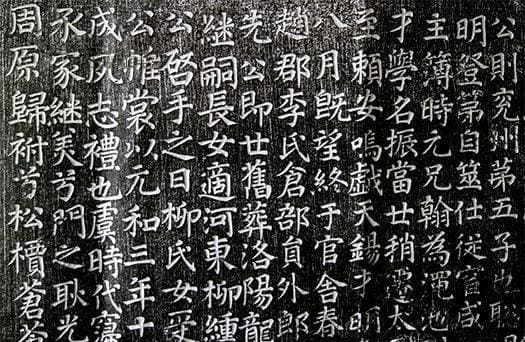 公則兖州第五子也聦
明登第自筮仕従官咸
主簿時元兄翰為澠池
才學名振當世稍遷太
至賴安嗚戲天錫才明
八月既望終于官舍春
趙郡李氏倉部貟外郎
先公即世舊葬洛陽龍
継嗣長女適河東柳緟
公啓手之日柳氏女受
公帷裳以元和三年十
成夙志禮也虞時代寖
承家継美兮門之耿光
周原歸祔兮松檟蒼蒼